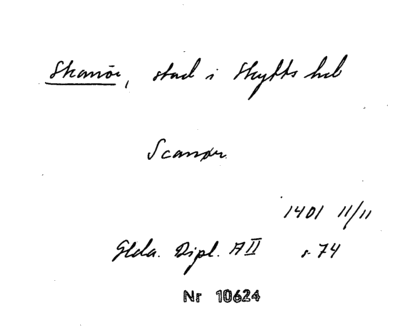 Skanör, stad i Skytts hd
Scanør
1401 11/11
Glda. Dipl. A II s. 74
Nr 10624